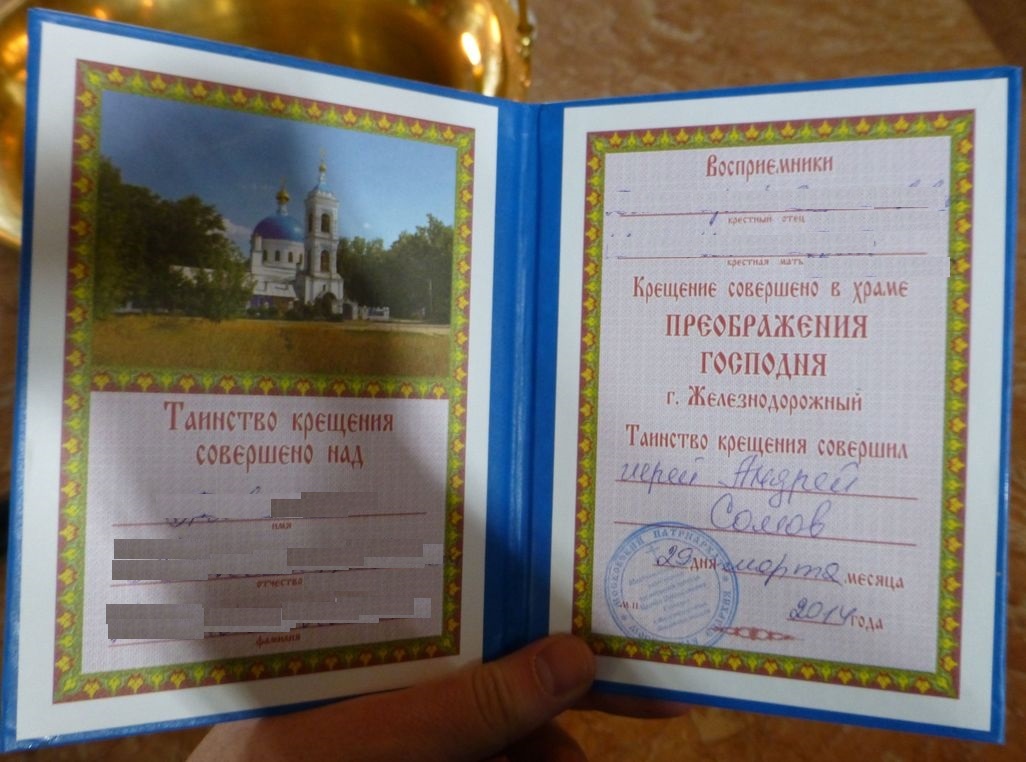 Таинство крещения
совершено над
имя
отчество
фамилия
Восприемники
крестный отец
крестная мать
Крещение совершено в храме
ПРЕОБРАЖЕНИЯ
ГОСПОДНЯ
г. Железнодорожный
Таинство крещения совершил
иерей Андрей
Сомов
29 дня марта месяца
М П
2014 года
МОСКОВСКИЙ ПАТРИАРХАТ